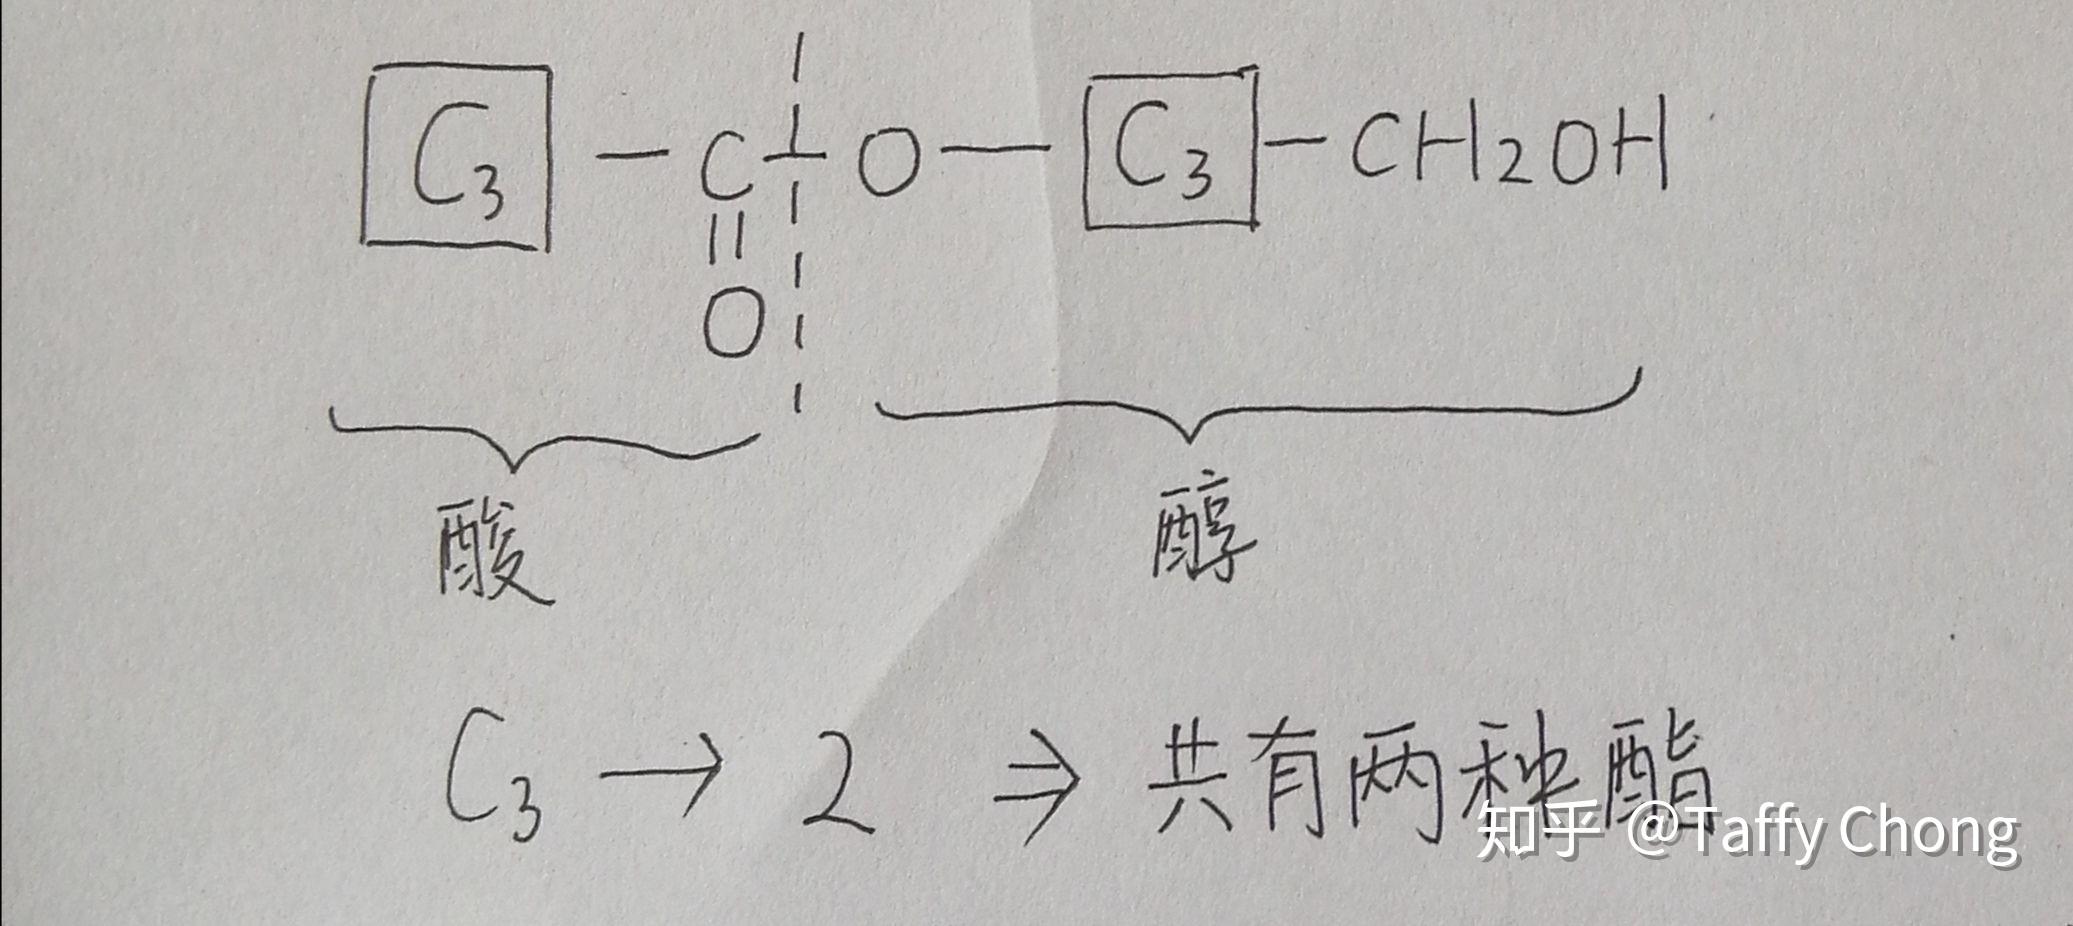 C₃ — C — O — C₃ — CH₂OH
O
酸 醇
C₃ → 2 ⇒ 共有两种酯
知乎 @Taffy Chong